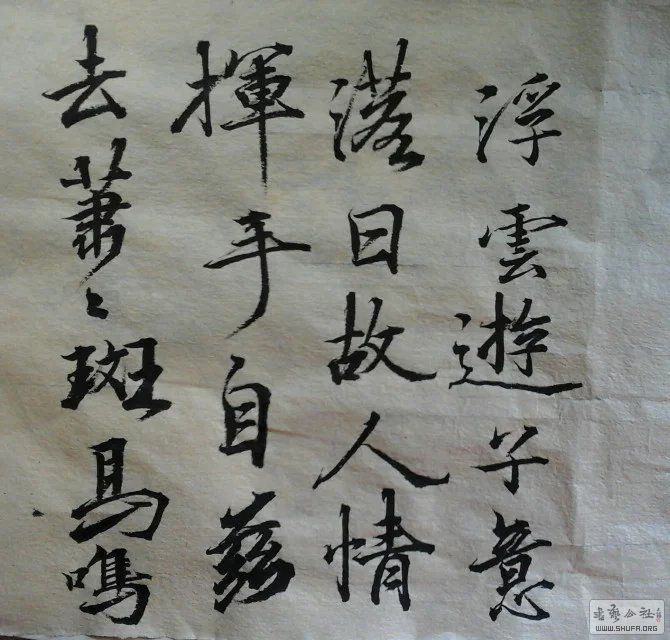 浮雲遊子意
落日故人情
揮手自茲
去蕭〻斑馬鳴
書藝公社
WWW.SHUFA.ORG